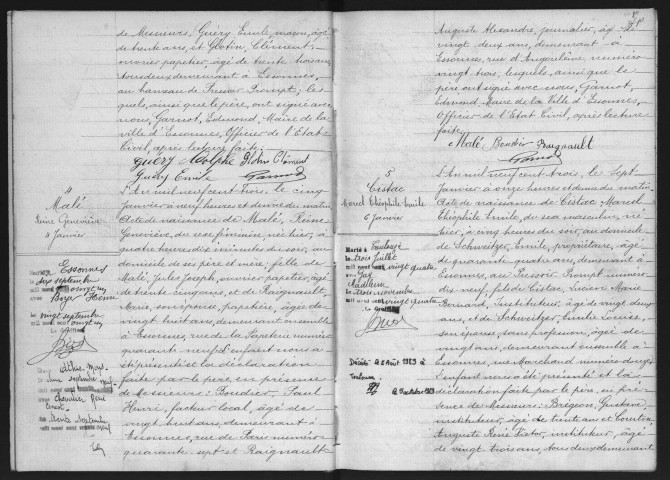 de Messieurs: Guéry Emile, maçon, âgé
de trente ans, et Glotin, Clément,
ouvrier papetier, âgé de trente trois ans,
tous deux demeurant à Essonnes,
au hameau de Pressoir Prompt; les-
quels, ainsi que le père, ont signé avec
nous, Garnot, Edmond, Maire de la
ville d'Essonnes, Officier de l'Etat
Civil, après lecture faite;
Guéry Adolphe Glotin Clément
Guéry Emile Garnot
4
Malé
Reine Geneviève
4 Janvier
L'An mil neuf cent trois, le cinq
Janvier à neuf heures et demie du matin
Acte de naissance de Malé, Reine
Geneviève, du sexe féminin, née hier, à
quatre heures dix minutes du soir, au
domicile de ses père et mère; fille de
Malé, Jules Joseph, ouvrier papetier, âgé
de trente cinq ans, et de Raignault,
Marie, son épouse, papetière, âgée de
vingt huit ans, demeurant ensemble
à Essonnes, rue de la Papeterie numéro
quarante neuf; l'enfant nous a
été présenté et la déclaration
faite par le père, en présence
de Messieurs: Boudier, Paul
Henri, facteur local, âgé de
vingt huit ans, demeurant à
Essonnes, rue de Paris numéro
quarante sept et Raignault
Essonnes
dix septembre
mil neuf cent vingt un
Henri
vingt septembre
mil neuf cent vingt un
septembre
René
trente septembre
Auguste Alexandre, journalier, âgé de
vingt deux ans, demeurant à
Essonnes, rue d'Angoulême, numéro
vingt trois, lesquels, ainsi que le
père ont signé avec nous, Garnot,
Edmond, Maire de la Ville d'Essonnes,
Officier de l'Etat Civil, après lecture
faite;
Malé Boudier Raignault
Garnot
5
Cistac
Marcel Théophile Emile
6 Janvier
L'An mil neuf cent trois, le sept
Janvier à onze heures et demie du matin
Acte de naissance de Cistac Marcel
Théophile Emile, du sexe masculin, né
hier, à cinq heures du soir, au domicile
de Schweitzer, Emile, propriétaire, âgé
de quarante quatre ans, demeurant à
Essonnes, au Pressoir Prompt numéro
dix neuf, fils de Cistac, Lucien Marie
Bernard, Instituteur, âgé de vingt deux
ans, et de Schweitzer, Emilie Louise,
son épouse, sans profession, âgée de
vingt ans, demeurant ensemble à
Essonnes, rue Marchand numéro douze;
l'enfant nous a été présenté et la
déclaration faite par le père, en pré-
sence de Messieurs: Brégeon, Gustave,
instituteur, âgé de trente ans et
Auguste René Victor, instituteur, âgé
de vingt trois ans, tous deux demeurant
Marié à Toulouse
le trois Juillet
mil neuf cent vingt quatre
avec
Madeleine
le trois novembre
mil neuf cent vingt quatre
Décédé le 2 Août 1989 à
Toulouse